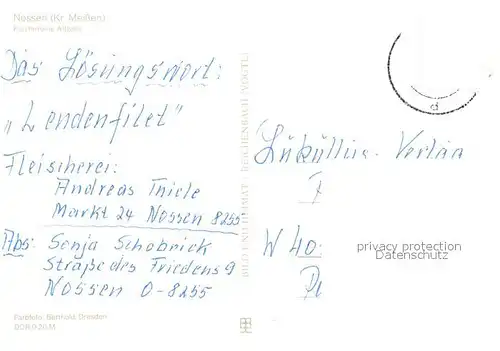 Nossen (Kr. Meißen)
Das Lösungswort:
„Lendenfilet"
Fleischerei:
Andreas Thiele
Markt 24 Nossen 8255
Abs: Sonja Schobrick
Straße des Friedens 9
Nossen O-8255
Farbfoto: Berthold Dresden
BILD UND HEIMAT REICHENBACH (VOGTL)
Lüküllius-Verlag
W 40
privacy protection
Datenschutz